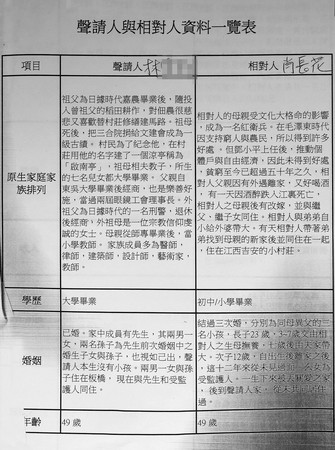 聲請人與相對人資料一覽表
項目
聲請人 林
相對人 肖長花
原生家庭家
族排列
祖父為日據時代嘉農畢業後，隨投
入曾祖父的稻田耕作，對佃農很慈
悲又喜歡替村莊修繕建馬路。祖母死
後，把三合院捐給文建會成為一
級古蹟。村民為了紀念他，在村
莊用他的名字建了一個涼亭稱為
「啟南亭」，祖母相夫教子，所生
的七名兒女都大學畢業。父親自
東吳大學畢業後經商，也是樂善好
施，當過兩屆眼鏡工會理事長。外
祖父為日據時代的一名刑警，退休
後經商，外祖母是一位宗教信仰虔
誠的女士。母親從師專畢業後，當
小學教師。家族成員多為醫師、
律師、建築師、設計師、藝術家、
教師。
相對人的母親受文化大格命的影響
，成為一名紅衛兵。在毛東東時代
因支持窮人與農民，所以得到許多
好處。但鄧小平上任後，推動個
體戶與自由經濟，因此未得到好處
，貧窮至今已超過五十年之久。相
對人父親因有外遇離家，又好喝酒
，有一天因酒醉跌入江裏死亡，相
對人之母親後有改嫁，並與繼
父、繼子女同住。相對人與弟弟自
小給外婆帶大。有天相對人帶著弟
弟找到母親的新家後並同住在一起
，住在江西吉安的小村莊。
學歷
大學畢業
初中/小學畢業
婚姻
已婚。家中成員有先生，其兩男一
女，兩名孫子為先生前次婚姻中之
婚生子女與孫子，也視如己出，聲
請人本生沒有小孩。兩男一女與孫
子住在板橋，現在與先生和受監
護人同住。
結過三次婚，分別為同母異父的三
名小孩，長子23歲，3-7歲交由相
對人之生母撫養，十歲後由夫家帶
大。次子12歲，自出生後離家之後
，這十二年來從未見過面。次女為
受監護人。一生下來
後到聲請人家，從未共同居住
過。
年齡
49 歲
49 歲